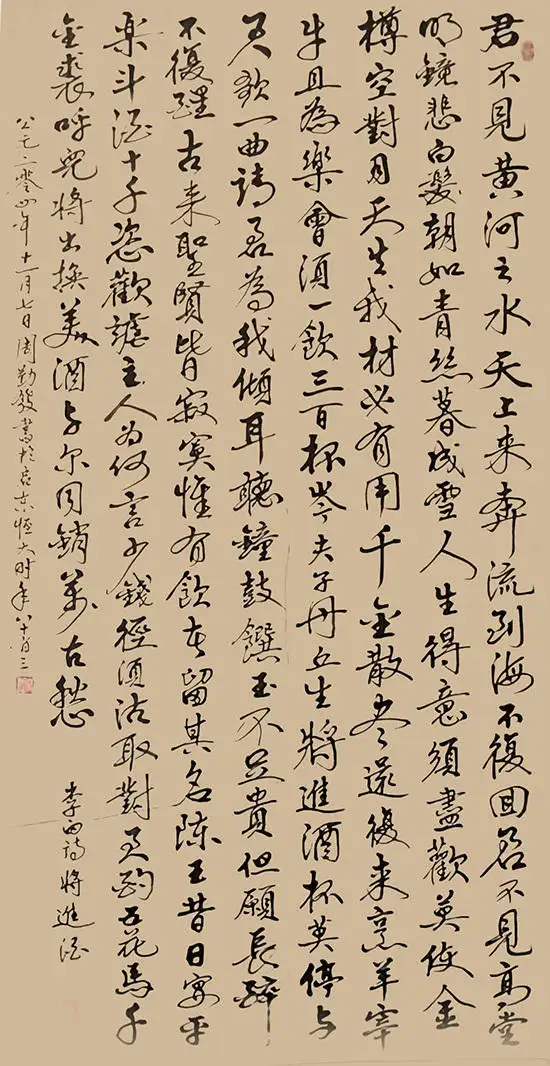 君不見黃河之水天上来奔流到海不復回君不見高堂
明鏡悲白髮朝如青絲暮成雪人生得意須盡歡莫使金
樽空對月天生我材必有用千金散尽還復来烹羊宰
牛且為樂會須一飲三百杯岑夫子丹丘生將進酒杯莫停与
君歌一曲請君為我傾耳聽鐘鼓饌玉不足貴但願長醉
不復醒古来聖賢皆寂寞惟有飲者留其名陳王昔日宴平
楽斗酒十千恣歡謔主人為何言少錢徑須沽取對君酌五花馬千
金裘呼兒將出換美酒与尔同銷萬古愁
李白詩將進酒
公元二零四年十一月七日周勤發書於啓東恒大時年八十有三